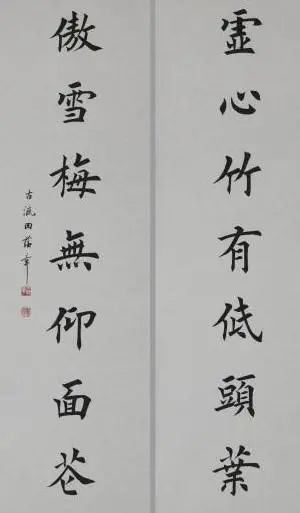 虛心竹有低頭葉
傲雪梅無仰面花
古瀛田蘊章